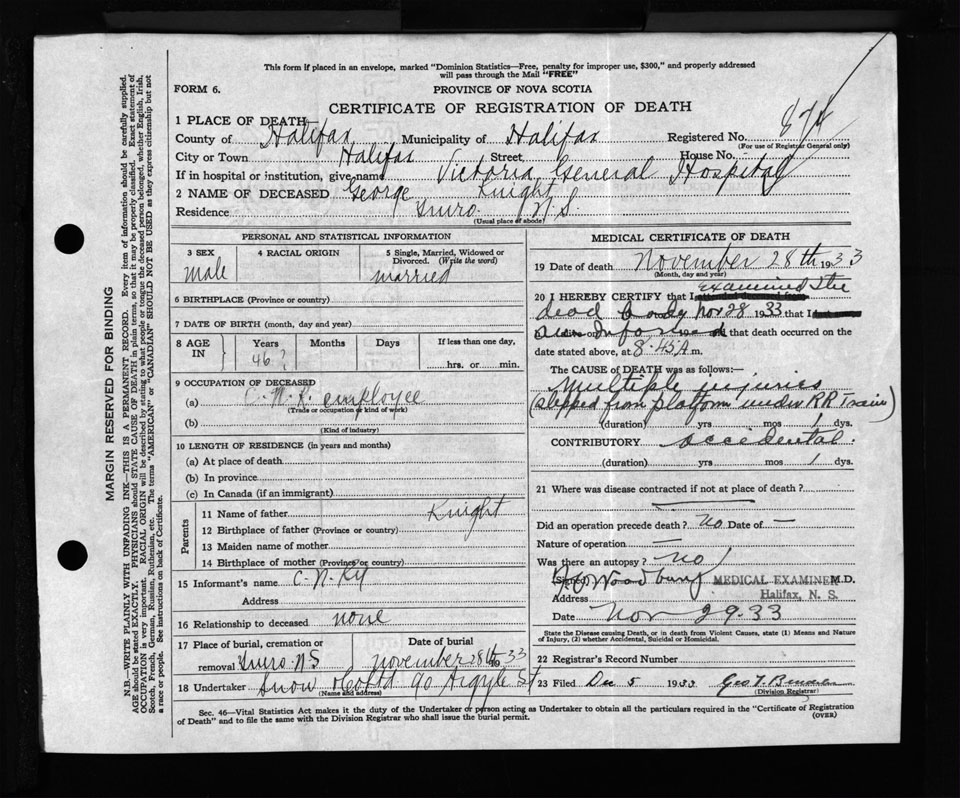 This form if placed in an envelope, marked "Dominion Statistics—Free, penalty for improper use, $300," and properly addressed
will pass through the Mail "FREE"
FORM 6.
PROVINCE OF NOVA SCOTIA
CERTIFICATE OF REGISTRATION OF DEATH
1 PLACE OF DEATH
County of Halifax Municipality of Halifax Registered No. 874
(For use of Registrar General only)
City or Town Halifax Street House No.
If in hospital or institution, give name Victoria General Hospital
2 NAME OF DECEASED George Knight
Residence Truro. N.S.
(Usual place of abode)
PERSONAL AND STATISTICAL INFORMATION
3 SEX male
4 RACIAL ORIGIN
5 Single, Married, Widowed or Divorced. (Write the word) married
6 BIRTHPLACE (Province or country)
7 DATE OF BIRTH (month, day and year)
8 AGE IN Years 46? Months Days If less than one day, hrs. or min.
9 OCCUPATION OF DECEASED
(a) C.N.R. employee
(Trade or occupation or kind of work)
(b)
(Kind of industry)
10 LENGTH OF RESIDENCE (in years and months)
(a) At place of death
(b) In province
(c) In Canada (if an immigrant)
Parents
11 Name of father Knight
12 Birthplace of father (Province or country)
13 Maiden name of mother
14 Birthplace of mother (Province or country)
15 Informant's name C.N.Ry
Address
16 Relationship to deceased none
17 Place of burial, cremation or removal Truro. N S
Date of burial November 28th 1933
18 Undertaker Snow & Co Ltd 90 Argyle St
(Name and address)
MEDICAL CERTIFICATE OF DEATH
19 Date of death November 28th 1933
(Month, day and year)
20 I HEREBY CERTIFY that I examined the
dead body Nov 28 1933 that I
and that death occurred on the
date stated above, at 8.45 A m.
The CAUSE of DEATH was as follows:—
Multiple injuries
(stepped from platform under RR Train)
(duration) yrs mos 1 dys.
CONTRIBUTORY accidental.
(duration) yrs mos 1 dys.
21 Where was disease contracted if not at place of death?
Did an operation precede death? no Date of —
Nature of operation —
Was there an autopsy? no
Signed Woodbury MEDICAL EXAMINER M.D.
Address Halifax, N. S.
Date Nov 29.33
State the Disease causing Death, or in death from Violent Causes, state (1) Means and Nature
of Injury, (2) whether Accidental, Suicidal or Homicidal.
22 Registrar's Record Number
23 Filed Dec 5 1933 Geo T.
(Division Registrar)
Sec. 46—Vital Statistics Act makes it the duty of the Undertaker or person acting as Undertaker to obtain all the particulars required in the "Certificate of Registration
of Death" and to file the same with the Division Registrar who shall issue the burial permit.
(OVER)
MARGIN RESERVED FOR BINDING
N.B.—WRITE PLAINLY WITH UNFADING INK—THIS IS A PERMANENT RECORD. Every item of information should be carefully supplied.
AGE should be stated EXACTLY. PHYSICIANS should STATE CAUSE OF DEATH in plain terms, so that it may be properly classified. Exact statement of
OCCUPATION is very important. RACIAL ORIGIN will be described by stating to what people or tongue the deceased person belonged, whether English, Irish,
Scotch, French, German, Russian, Ruthenian, etc. The terms "AMERICAN" or "CANADIAN" SHOULD NOT BE USED as they express citizenship but not
a race or people. See instructions on back of Certificate.